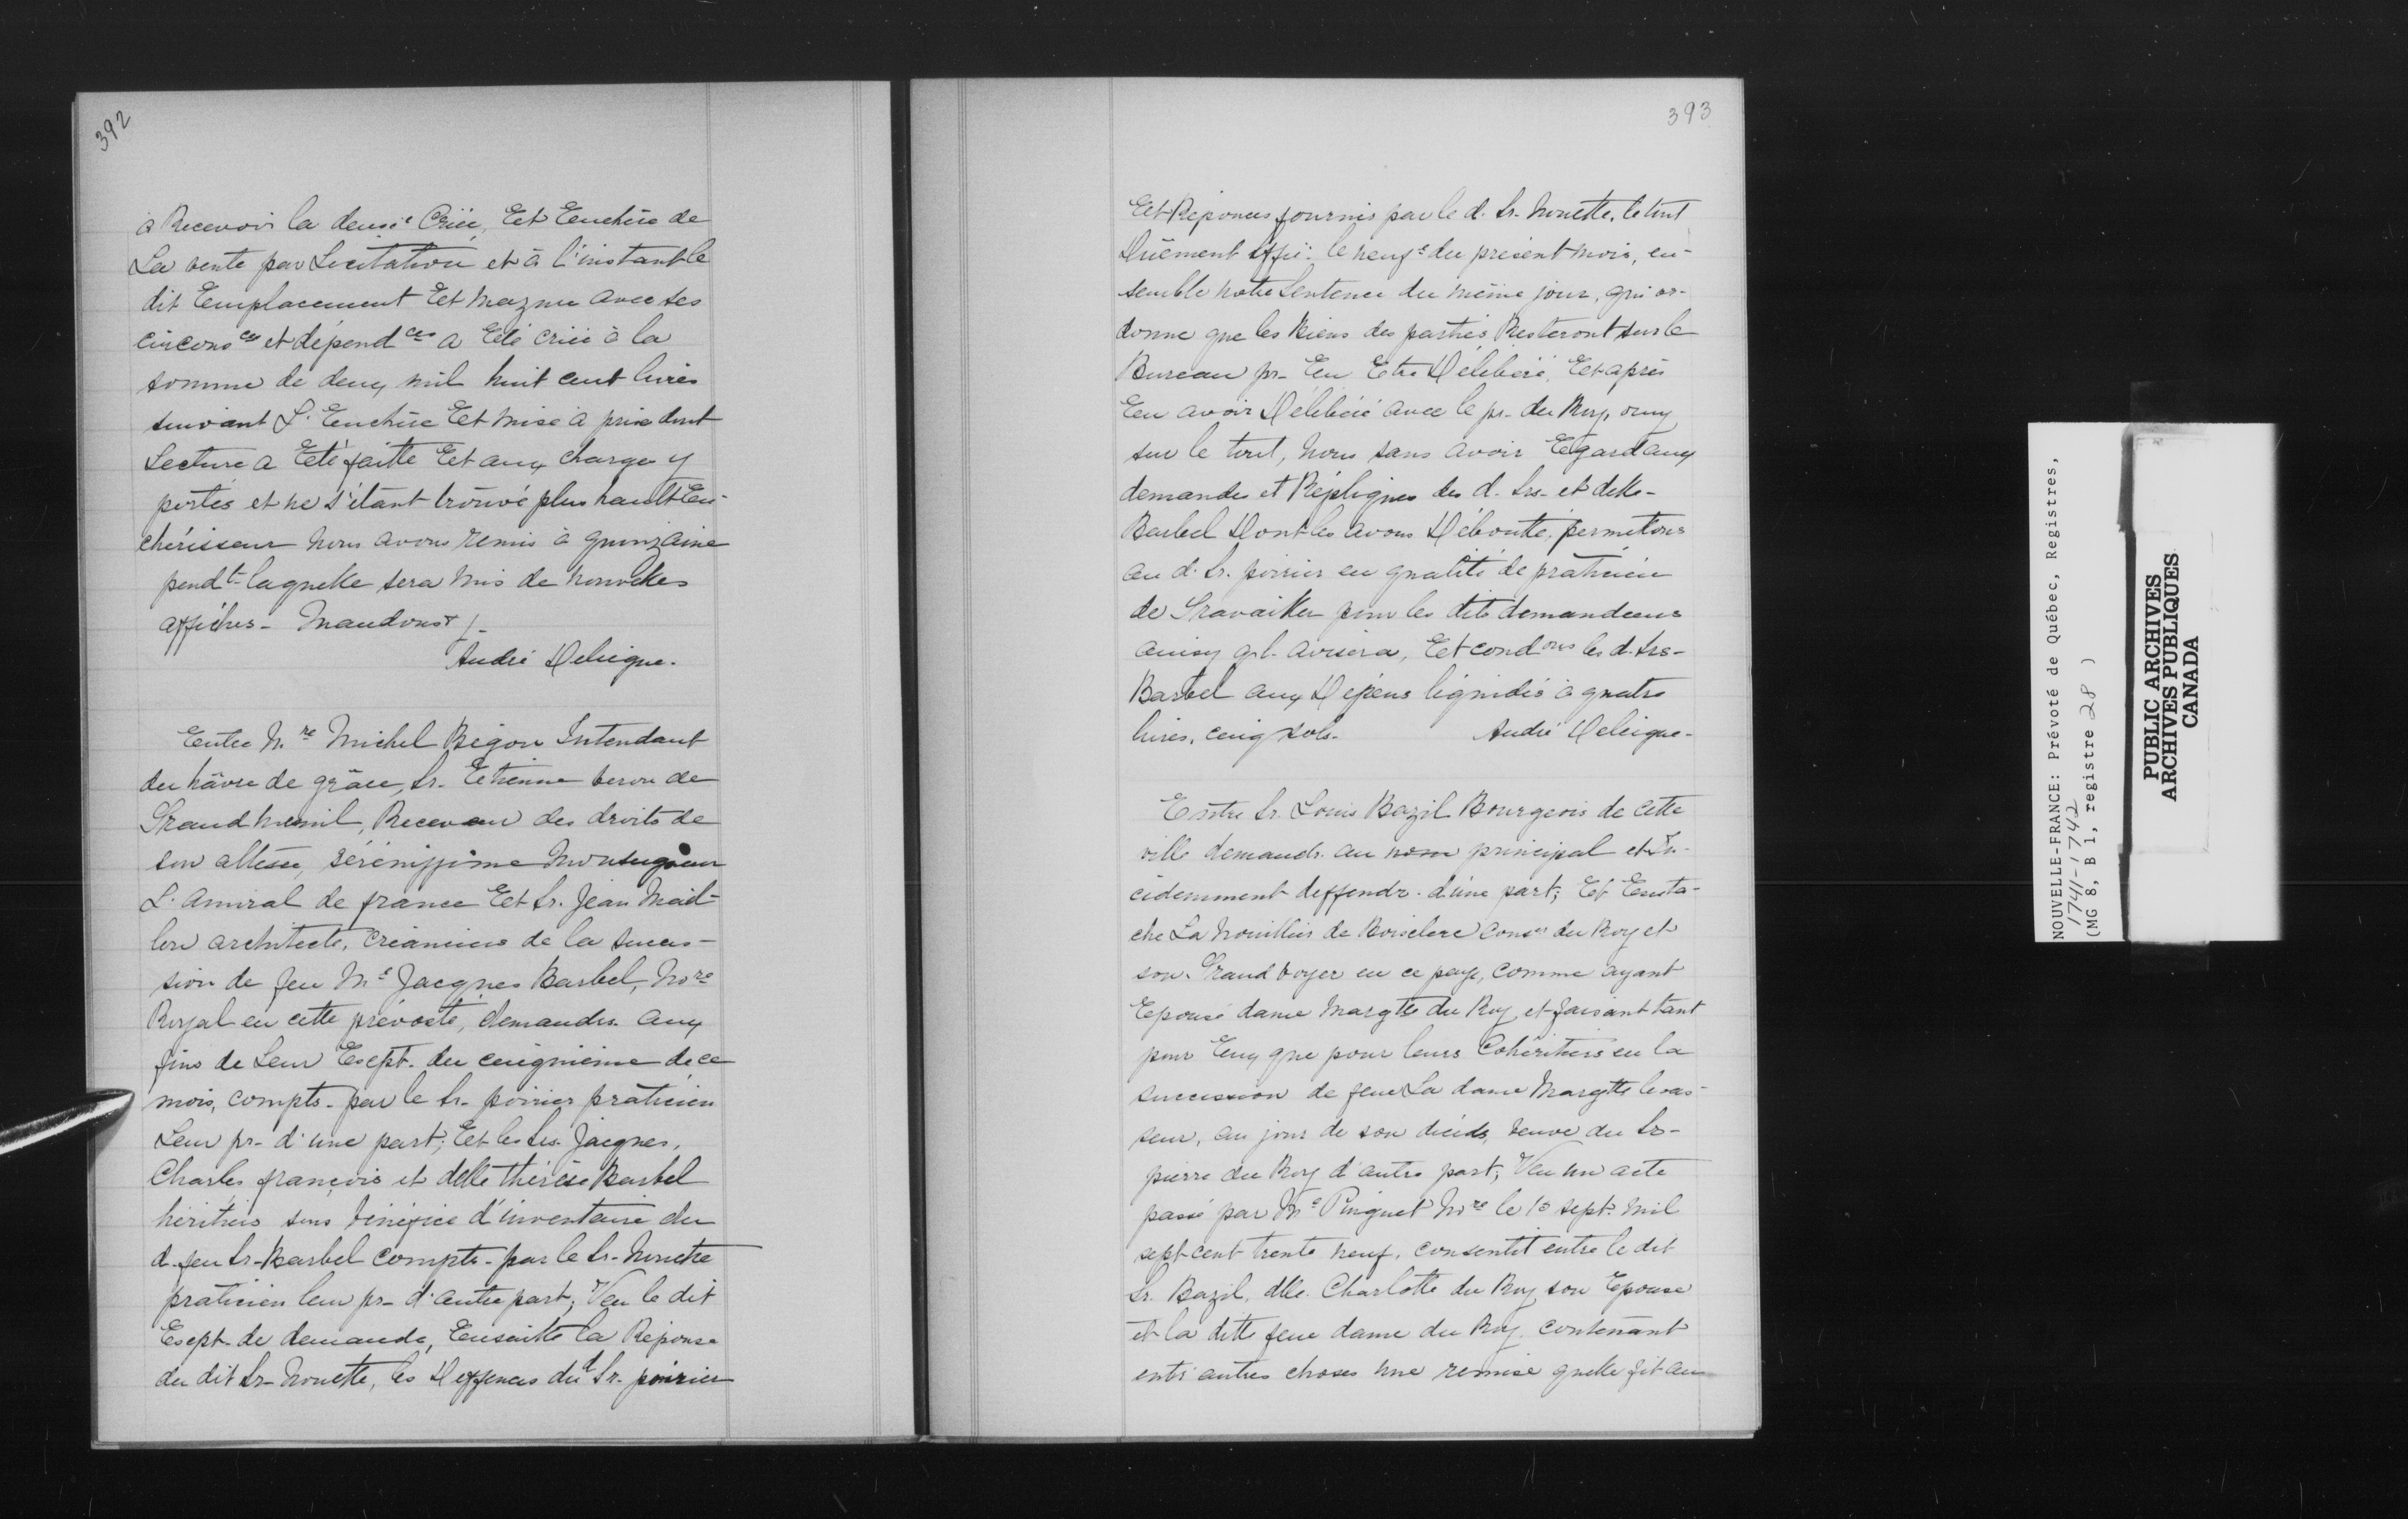 392
à Recevoir la deusie Criée, Et Enchère de
La vente par Licitation et à l'instant le
dit Emplacement Et mazure avec ses
circons ces et dépend ces a Eté criée à la
somme de deux mil huit cent livres
suivant L'Enchère Et mise à prix dont
Lecture a Eté faitte Et aux charges y
portés et ne s'étant trouvé plus hault En-
chérisseur nous avons remis à quinzaine
pendt laquelle sera mis de nouvelles
affiches - Mandons &
André Deleigne.
Entre M.re Michel Begon Intendant
du hâvre de grâce, Sr. Etienne veron de
Grandmesnil, Receveur des droits de
son altesse, sérénissime Monseigneur
L'amiral de france Et Sr. Jean Mail-
lou architecte, Créanciers de la succes-
sion de feu Me Jacques Barbel, Nore
Royal en cette prévosté, demandrs. aux
fins de Leur Exept. du cinquième de ce
mois, compts. par le Sr. poirier praticien
Leur pr. d'une part; Et les Srs. Jacques,
Charles françois et delle thérèse Barbel
héritiers sous bénéfice d'inventaire du
d. feu Sr. Barbel compts. par le Sr. Nouette
praticien leur pr. d'autre part; Veu le dit
Exept. de demande, Ensuitte la Réponse
du dit Sr. Nouette, les Deffences du d Sr. poirier
393
Et Réponces fournis par le d. Sr. Nouette, le tout
Duëment siffié: le neufe du présent mois, en-
semble notre Sentence du même jour, qui or-
donne que les Pièces des parties Resteront sur le
Bureau pr. En Etre Délibéré, Et après
En avoir Délibéré avec le pr. du Roy, ouy
sur le tout, nous sans avoir Egard aux
demandes et Répliques des d. Srs. et delle.
Barbel Dont les avons Déboutté, permetons
au d. Sr. poirier en qualité de praticien
de Travailler pour les dits demandeurs
ainsy q.l. avisera, Et condons les d. Srs.
Barbel aux Dépens liquidés à quatre
livres, cinq sols. André Deleigne.
Entre Sr. Louis Bazil Bourgeois de cette
ville demandr. au nom principal et In-
cidemment deffendr. d'une part; Et Eusta-
che La Nouillier de Boisclerc Conser du Roy et
son Grand voyer en ce pays, comme ayant
Epousé dame Margtte du Roy, et faisant tant
pour Eux que pour leurs Cohéritiers en la
succession de feue La dame Margtte levas-
seur, au jour de son décéds, veuve du Sr.
pierre du Roy d'autre part; Veu un acte
passé par Me Pinguet Nore le 10 sept. mil
sept cent trente neuf, consentit entre le dit
Sr. Bazil, dlle. Charlotte du Roy, son Epouse
et la ditte feue dame du Roy, contenant
entr'autres choses une remise quelle fit au
NOUVELLE-FRANCE: Prévoté de Québec, Registres,
1741-1742
(MG 8, B 1, registre 28 )
PUBLIC ARCHIVES
ARCHIVES PUBLIQUES
CANADA